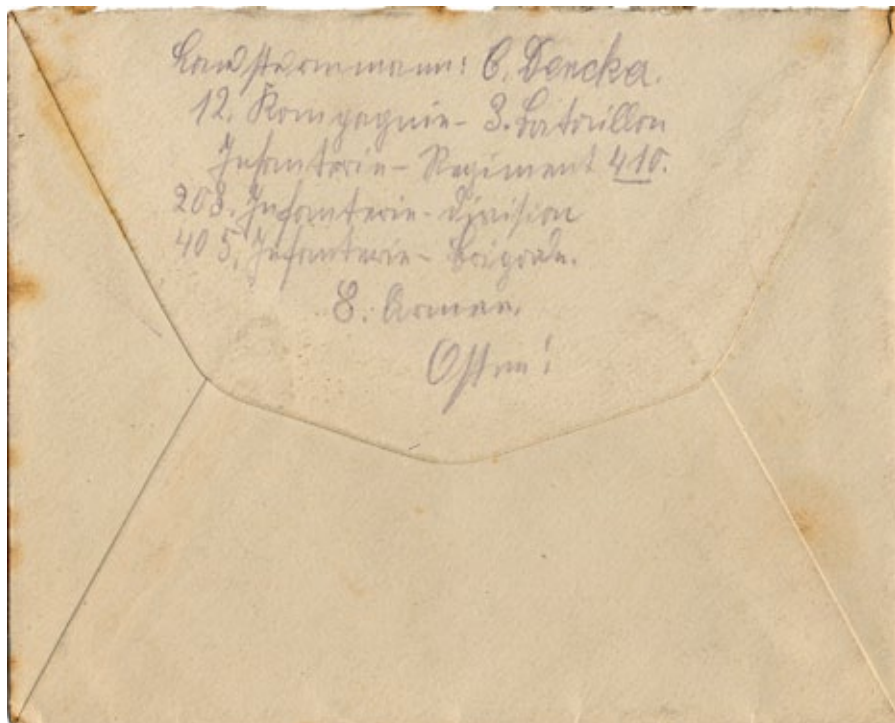 Landsturmmann: C. Dencka.
12. Kompagnie - 3. Bataillon
Infanterie - Regiment 410.
203. Infanterie - Division
405. Infanterie - Brigade.
8. Armee.
Osten!